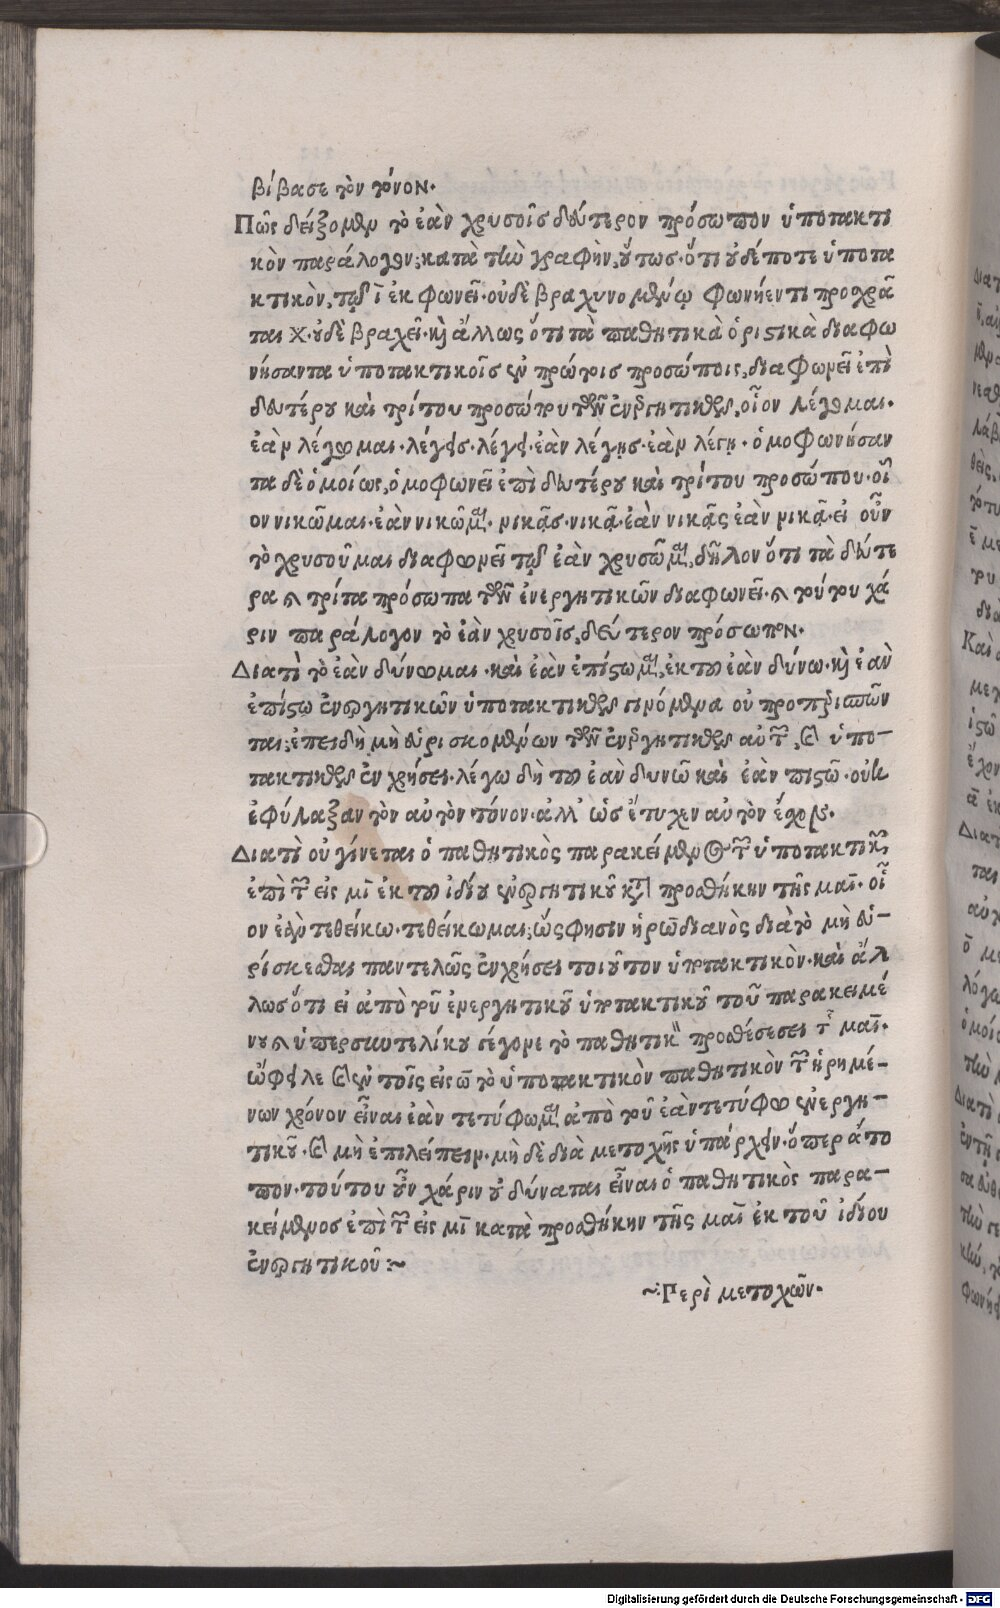 βίβασε τὸν τόνον.
Πῶς δείξομεν τὸ ἐὰν χρυσοῖς δεύτερον πρόσωπον ὑποτακτι
κὸν παράλογον; κατὰ τὴν γραφὴν, οὕτως. ὅτι οὐδέποτε ὑποτα
κτικὸν, τὸ ῑ ἐκφωνεῖ. οὐδὲ βραχυνομένῳ φωνήεντι προσχρᾶ
ται χ. οὐδὲ βραχεῖ. καὶ ἄλλως ὅτι τὰ παθητικὰ ὁριστικὰ διαφω
νήσαντα ὑποτακτικοῖς ἐν πρώτοις προσώποις, διαφωνεῖ ἐπὶ
δευτέρου καὶ τρίτου προσώπου τῶν ἐνεργητικῶν, οἷον λέγομαι.
ἐὰν λέγωμαι. λέγεις. λέγει. ἐὰν λέγῃς. ἐὰν λέγῃ. ὁμοφωνήσαν
τα δὲ ὁμοίως, ὁμοφωνεῖ ἐπὶ δευτέρου καὶ τρίτου προσώπου. οἷ
ον νικῶμαι. ἐὰν νικῶμαι. νικᾷς. νικᾷ. ἐὰν νικᾷς ἐὰν νικᾷ. εἰ οὖν
τὸ χρυσοῦμαι διαφωνεῖ τῷ ἐὰν χρυσῶμαι, δῆλον ὅτι τὰ δεύτε
ρα καὶ τρίτα πρόσωπα τῶν ἐνεργητικῶν διαφωνεῖ. καὶ τούτου χά
ριν παράλογον τὸ ἐὰν χρυσοῖς, δεύτερον πρόσωπον.
Διατὶ τὸ ἐὰν δύνωμαι. καὶ ἐὰν ἐπίστωμαι, ἐκ τοῦ ἐὰν δύνω. καὶ ἐὰν
ἐπίστω ἐνεργητικῶν ὑποτακτικῶν γινόμενα οὐ προπερισπῶν
ται; ἐπειδὴ μὴ εὑρισκομένων τῶν ἐνεργητικῶν αὐτῶν, καὶ ὑπο-
τακτικῶν ἐν χρήσει. λέγω δὴ τοῦ ἐὰν δυνῶ καὶ ἐὰν πιστῶ. οὐκ
ἐφύλαξαν τὸν αὐτὸν τόνον. ἀλλ' ὡς ἔτυχεν αὐτὸν ἔσχον.
Διατὶ οὐ γίνεται ὁ παθητικὸς παρακείμενος τῶν ὑποτακτικῶν
ἐπὶ τῶν εἰς μῑ ἐκ τοῦ ἰδίου ἐνεργητικοῦ κατὰ προσθήκην τῆς μαῑ. οἷ
ον ἐὰν τεθείκω. τεθείκωμαι; ὥς φησιν ἡρωδιανὸς διὰ τὸ μὴ εὑ-
ρίσκεσθαι παντελῶς ἐν χρήσει τοιοῦτον ὑποτακτικὸν. καὶ ἄλ
λως ὅτι εἰ ἀπὸ τοῦ ἐνεργητικοῦ ὑποτακτικοῦ τοῦ παρακειμέ
νου καὶ ὑπερσυντελίκου γέγονε τὸ παθητικὸν προσθέσεσει τῆς μαῑ.
ὤφειλε καὶ ἐν τοῖς εἰς ω̄ τὸ ὑποτακτικὸν παθητικὸν τῶν ἡρημέ-
νων χρόνον εἶναι ἐὰν τετύφωμαι ἀπὸ τοῦ ἐὰν τετύφω ἐνεργη-
τικοῦ. καὶ μὴ ἐπιλείπειν. μὴ δὲ διὰ μετοχῆς ὑπάρχειν. ὅπερ ἄτο
πον. τούτου οὖν χάριν οὐ δύναται εἶναι ὁ παθητικὸς παρα-
κείμενος ἐπὶ τῶν εἰς μῑ κατὰ προσθήκην τῆς μαῑ ἐκ τοῦ ἰδίου
ἐνεργητικοῦ:~
~:Περὶ μετοχῶν.
Digitalisierung gefördert durch die Deutsche Forschungsgemeinschaft - DFG